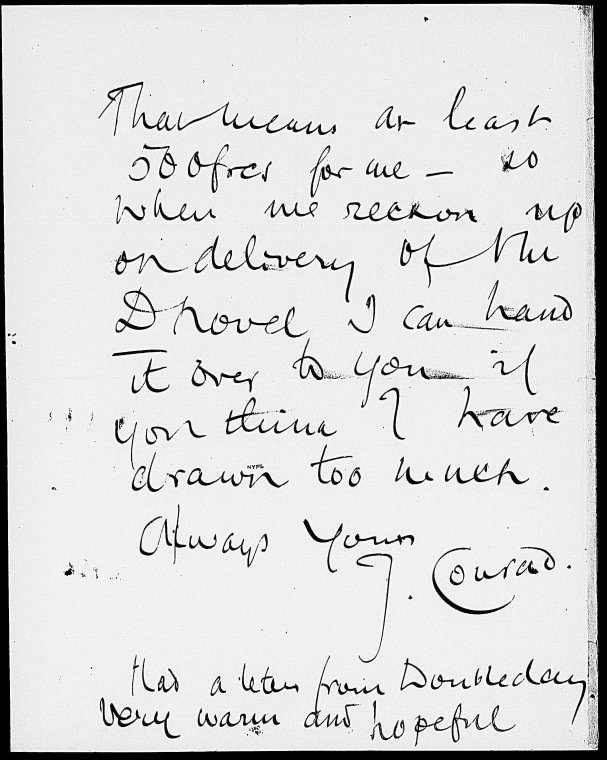 That means at least
500frcs for me — so
when we reckon up
on delivery of the
D novel I can hand
it over to you if
you think I have
drawn too much.
NYPL
Always Yours
J. Conrad.
Had a letter from Doubleday.
Very warm and hopeful